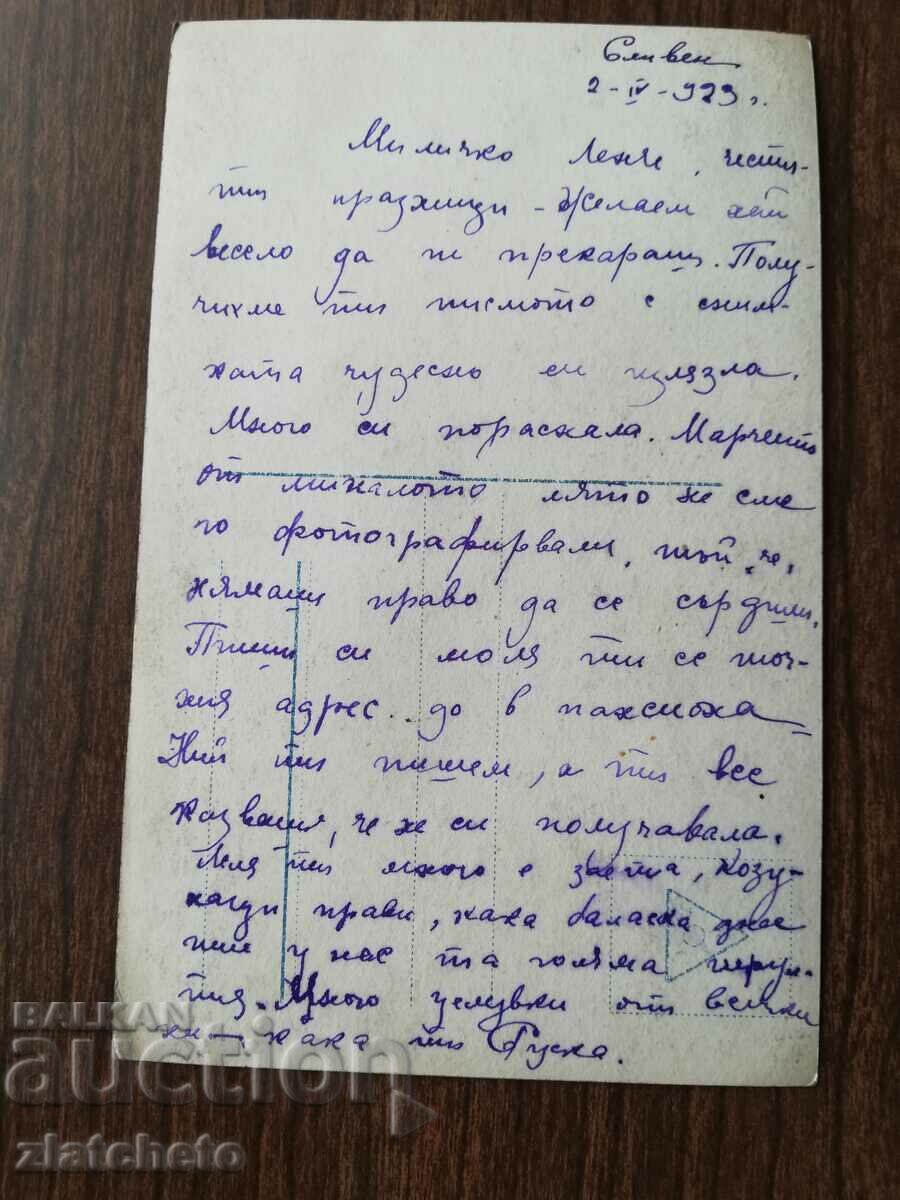 Сливен
2-IV-929 г.
Миличко Ленче, чести-
ти празници - Желаем
весело да ги прекараш. Полу-
чихме ти писмото с сним-
ката чудесно си излязла.
Много си порасхала. Марчето
от миналото лято не сме
го фотографирвали, тъй че,
нямаш право да се сърдиш.
Пиши си моля ти се точ-
ния адрес до в пансиона
Ний ти пишем, а ти все
казваш, че не си получавала.
Леля ти много е заета, козу-
наци прави, кака
у нас та голяма
Много целувки от всички
ни - кака ти Руска.
BALKAN
auction
zlatcheto